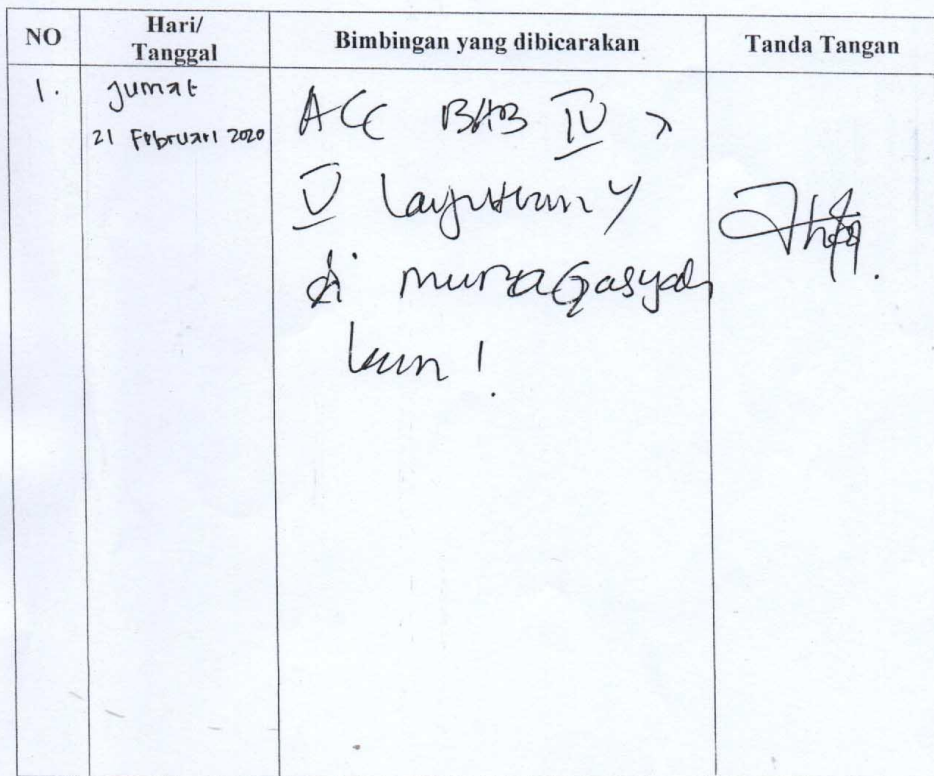 NO Hari/ Tanggal Bimbingan yang dibicarakan Tanda Tangan
1. Jumat
21 Februari 2020
ACC BAB IV
V lanjutkan
di munaqasyah
kan!